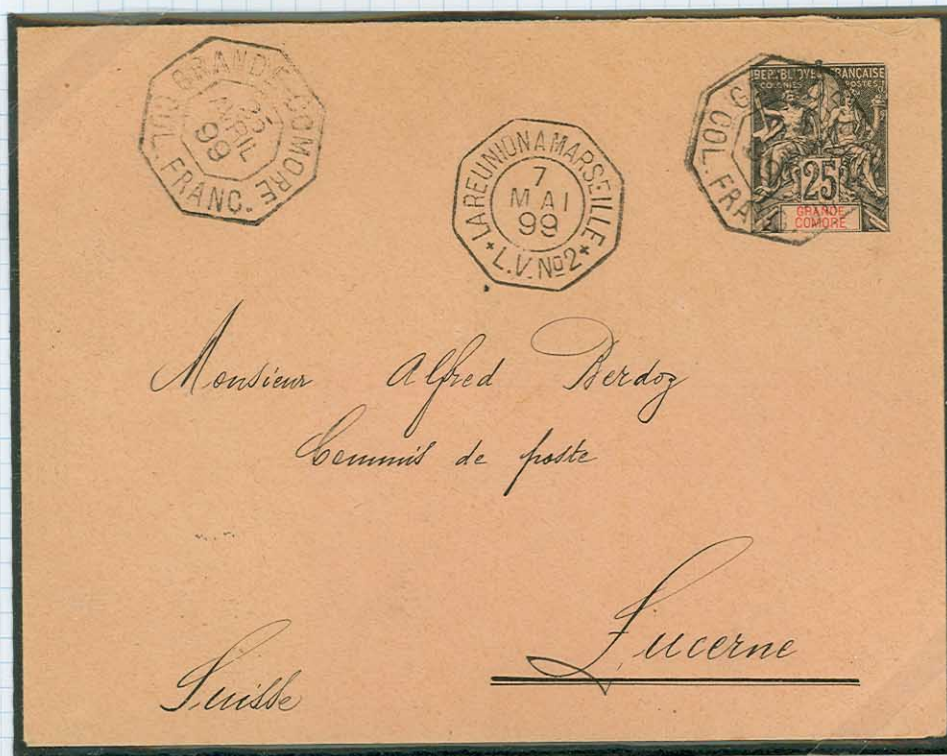 GRANDE-COMORE
25
AVRIL
99
COL. FRANC.
LA REUNION A MARSEILLE
7
MAI
99
* L.V. No 2 *
REPUBLIQUE FRANÇAISE
COLONIES POSTES
25
GRANDE
COMORE
COL. FRANC.
Monsieur Alfred Berdoz
Commis de poste
Lucerne
Suisse